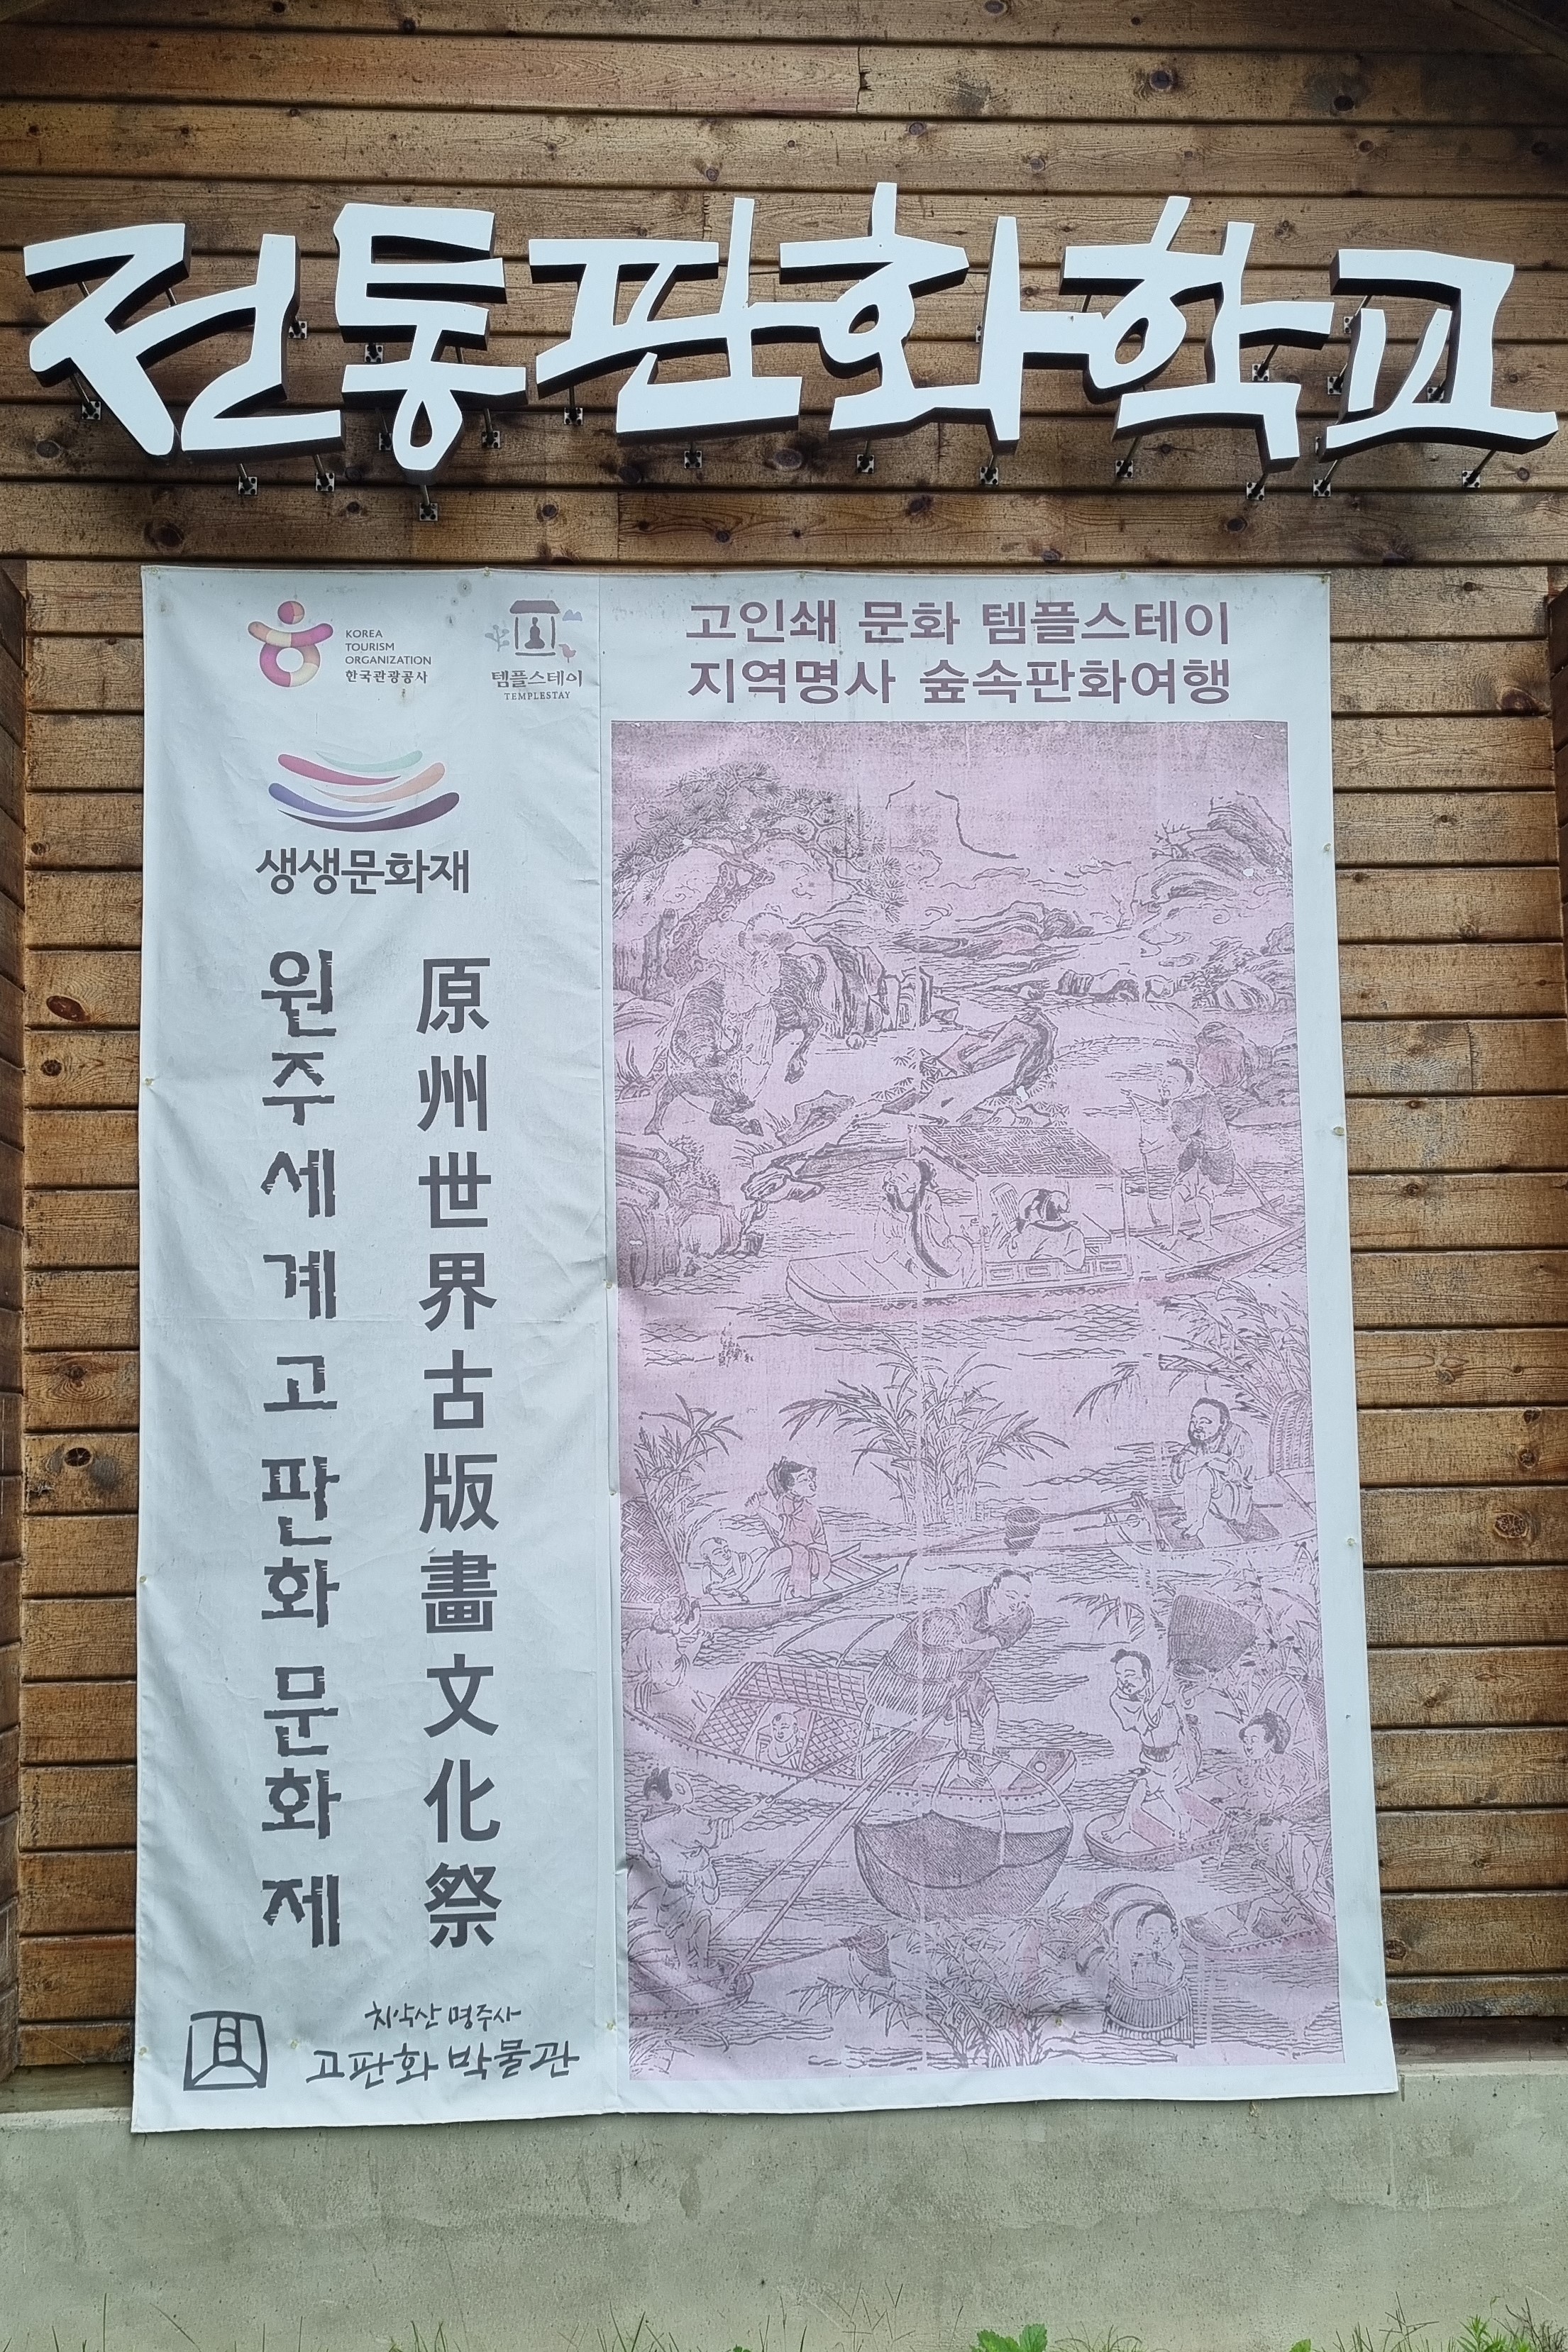 전통판화학교
KOREA
TOURISM
ORGANIZATION
한국관광공사
템플스테이
TEMPLESTAY
생생문화재
原州世界古版畫文化祭
원주세계고판화문화제
치악산 명주사
고판화 박물관
고인쇄 문화 템플스테이
지역명사 숲속판화여행